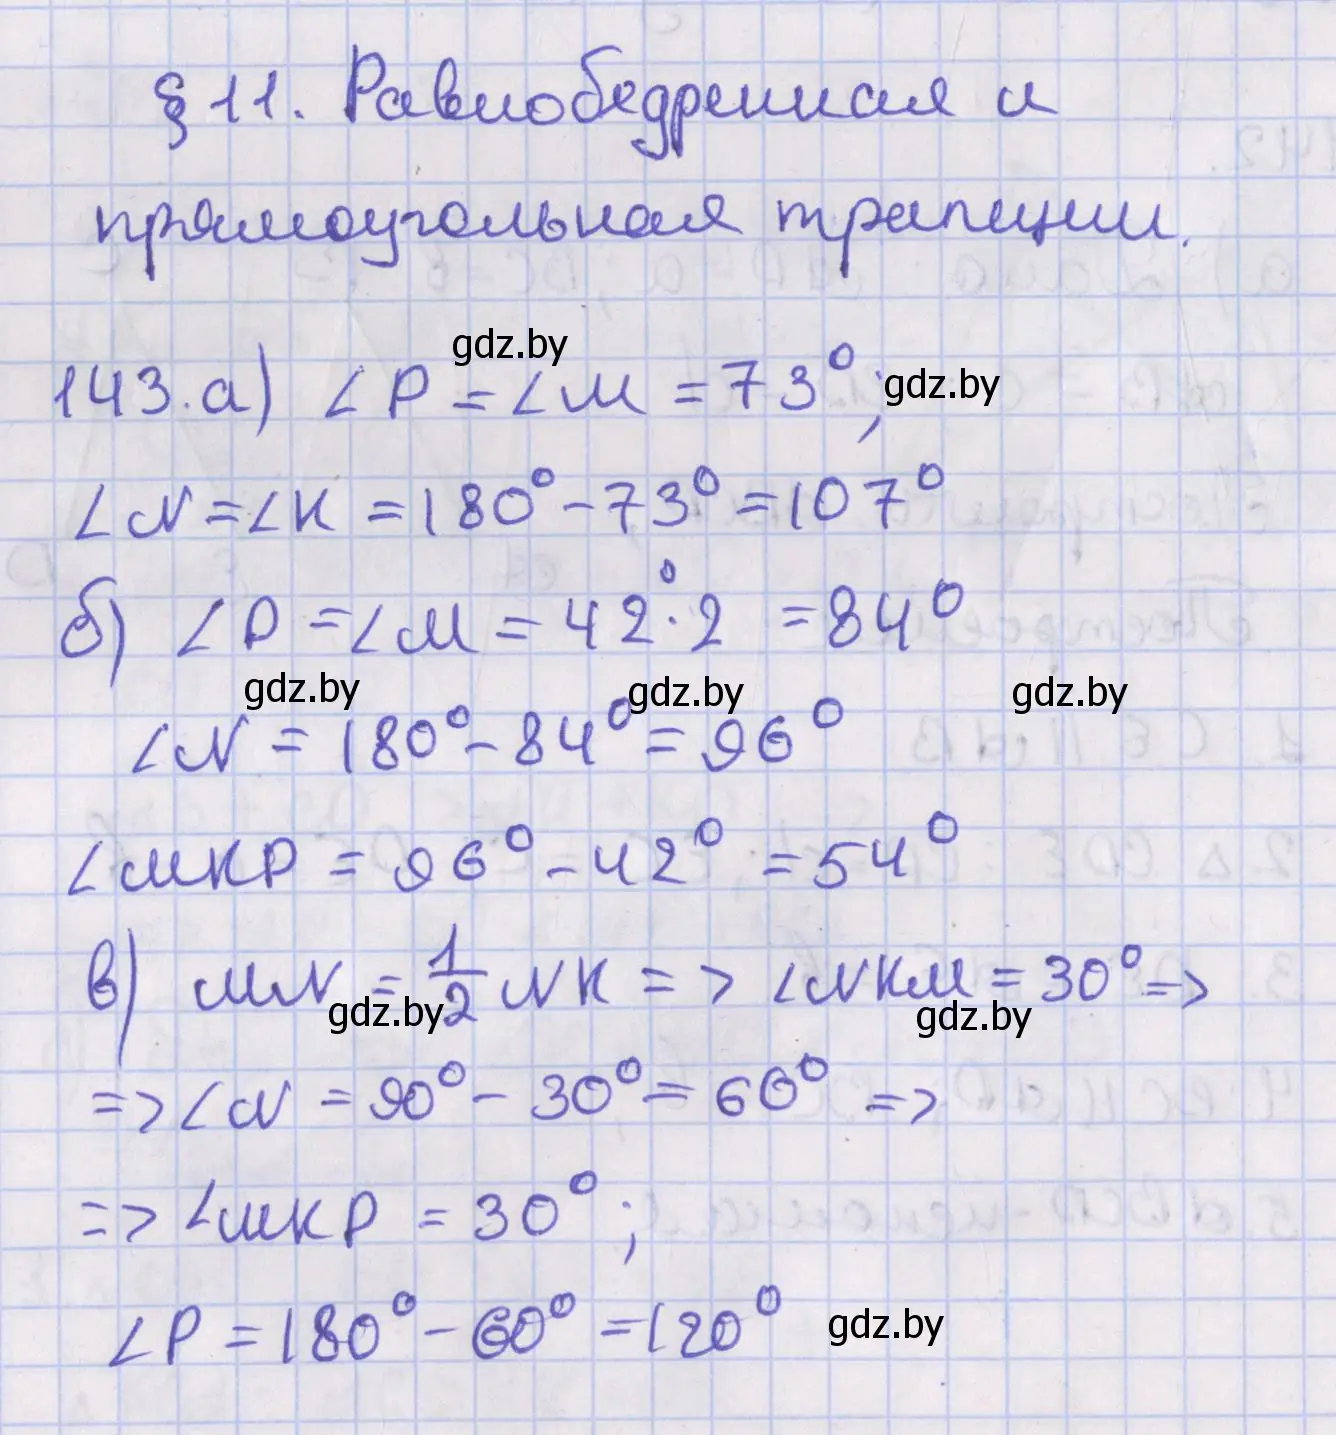 § 11. Равнобедренная и
прямоугольная трапеции.
gdz.by
143.а) ∠P = ∠M = 73°; gdz.by
∠N = ∠K = 180° - 73° = 107°
б) ∠P = ∠M = 42°·2 = 84°
gdz.by gdz.by gdz.by
∠N = 180° - 84° = 96°
∠MKP = 96° - 42° = 54°
в) MN = 1/2 NK => ∠NKM = 30° =>
gdz.by gdz.by
=> ∠N = 90° - 30° = 60° =>
=> ∠MKP = 30°;
∠P = 180° - 60° = 120° gdz.by